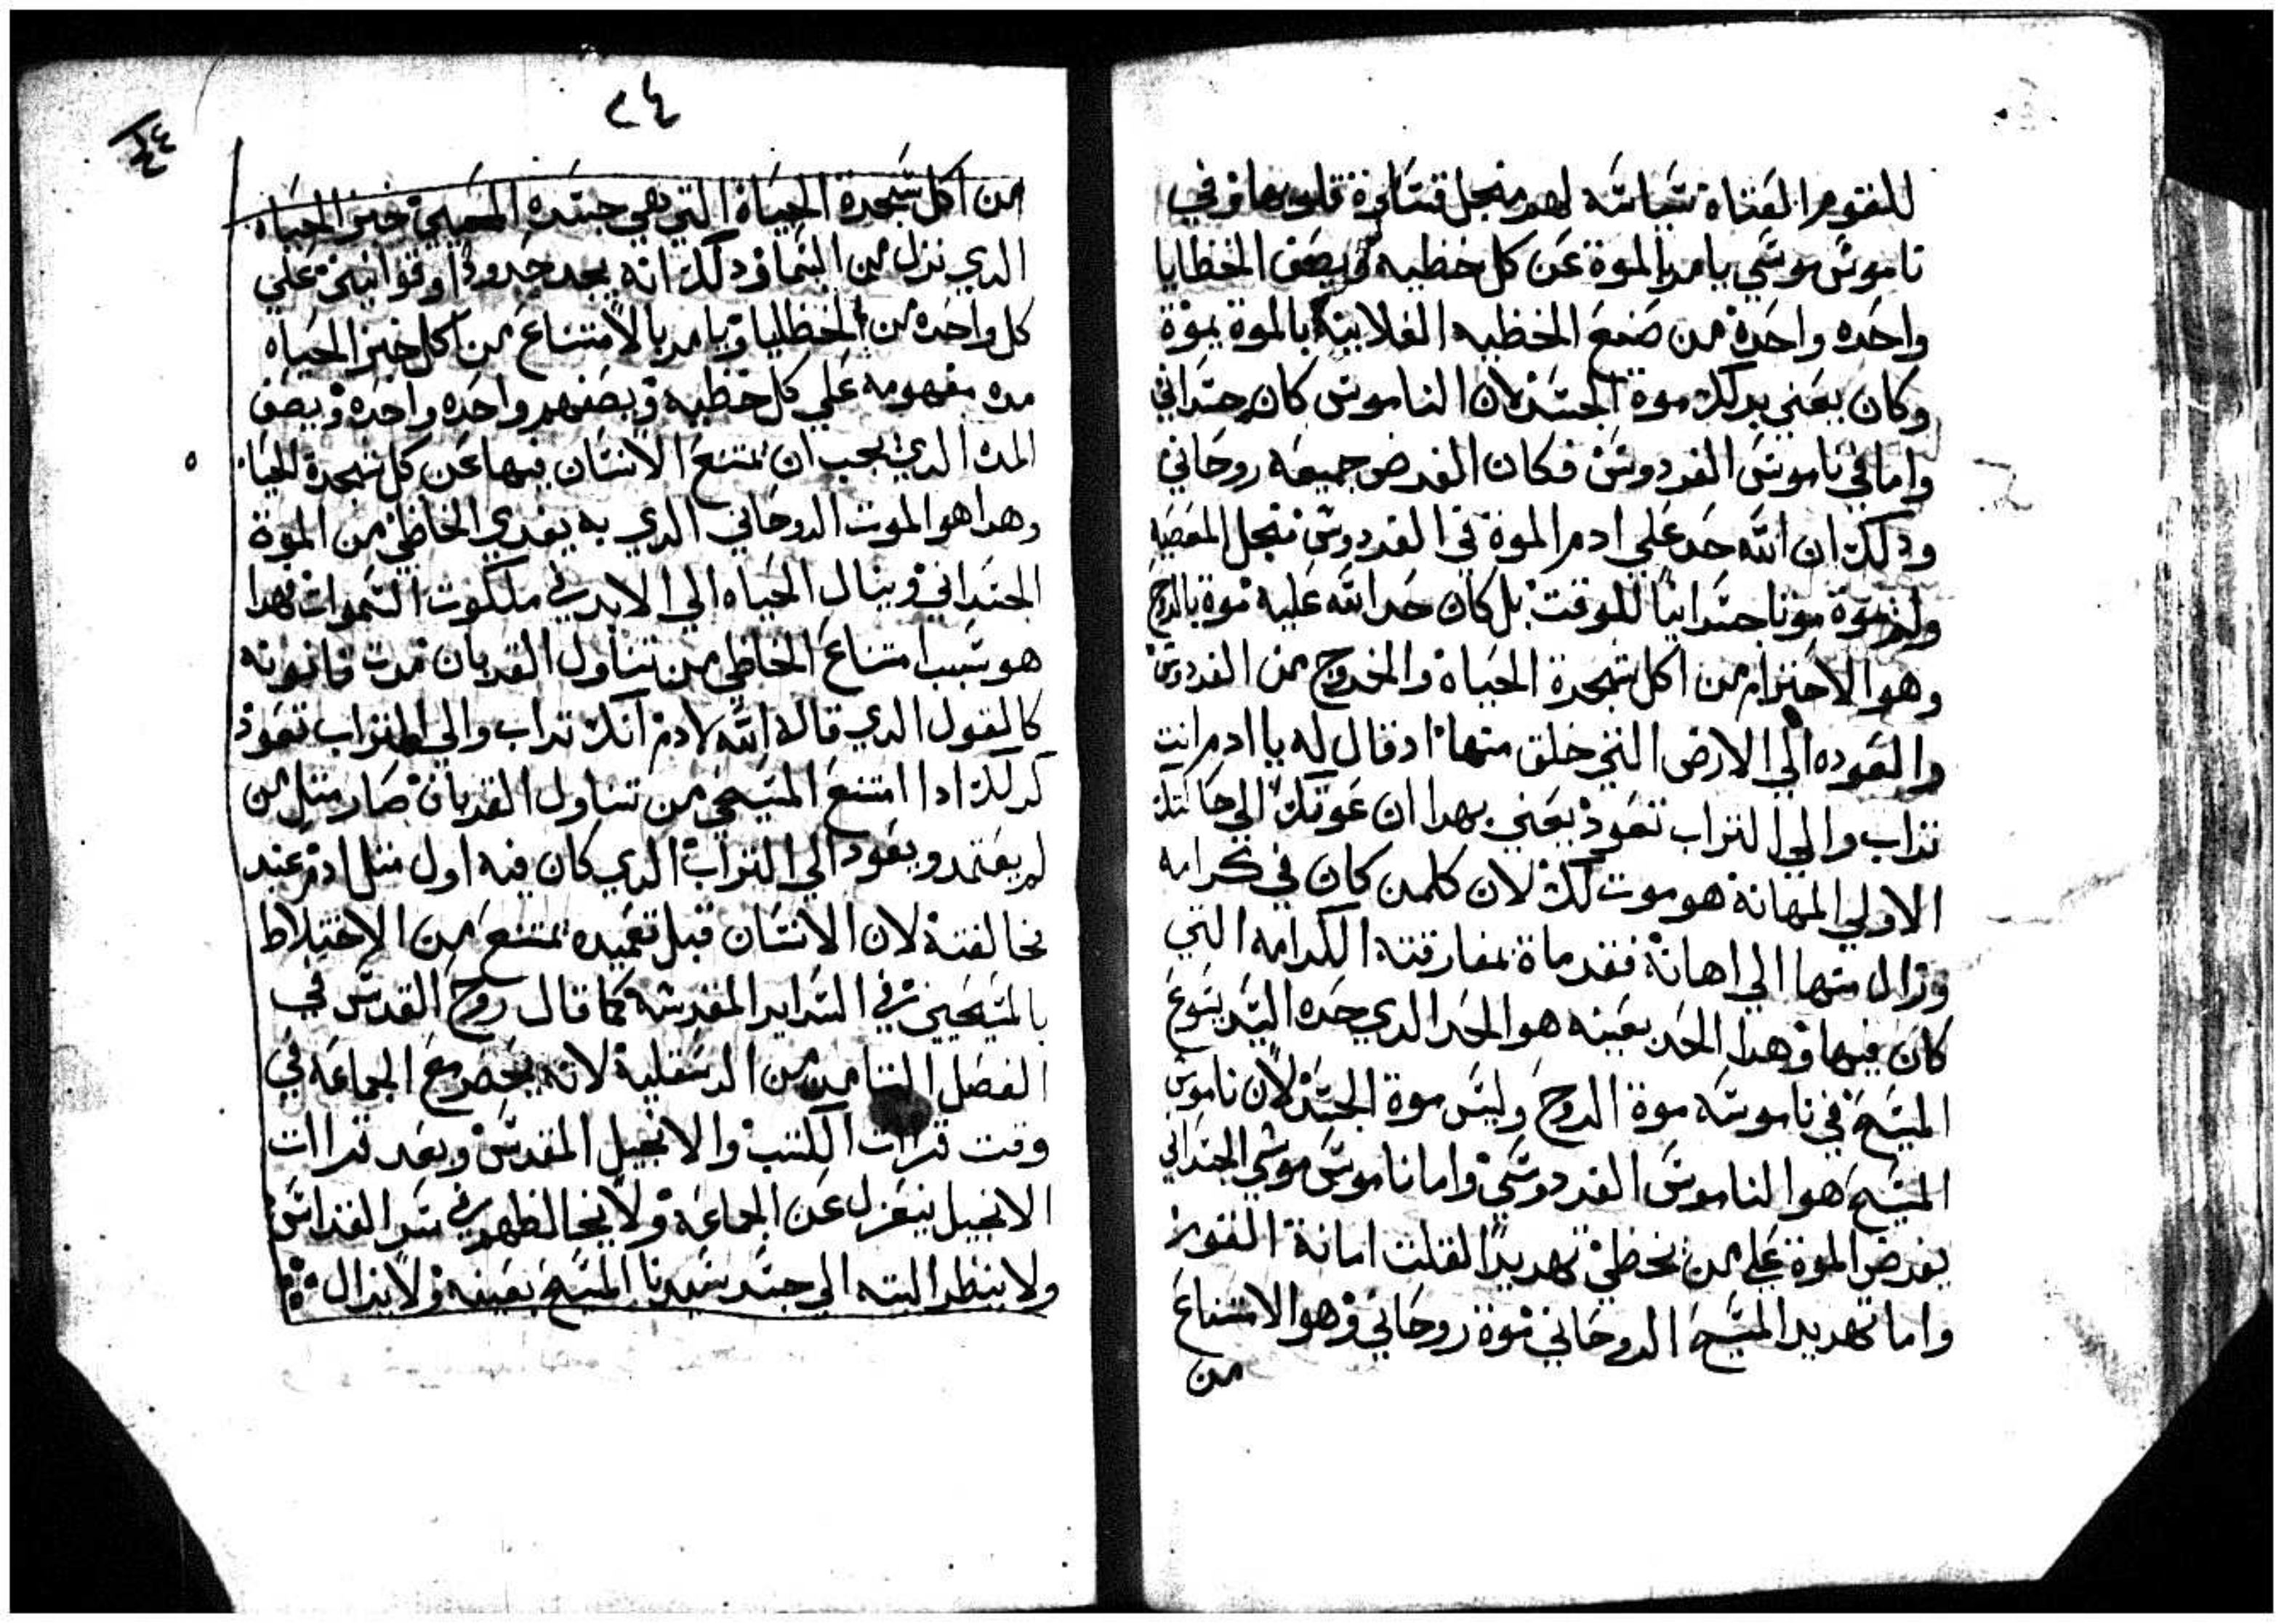 للقوم القتاة سياسه لهم منجل قساوة قلوبها وفي
ناموس موسي يامر بالموة عن كل خطيه ويصف الخطايا
واحده واحدة من صنع الخطيه الفلانيه بالموة يموة
وكان يعني بدلك موة الجسد لان الناموس كان جسداني
واما في ناموس الفردوس فكان الفرض جميعه روحاني
ودلك ان الله حد علي ادم الموة في الفردوس منجل المعصيه
ولم يموة موتا جسدانيا للوقت بل كان حد الله عليه موة بالروح
وهو الاحترام من اكل شجرة الحياة والخروج من الفردوس
والعوده الي الارض التي خلق منها اد قال له يا ادم انت
تراب والي التراب تعود يعني بهدا ان عودتك الي حالتك
الاولي المهانة هو موت لك لان كلمن كان في كرامه
وزال منها الي اهانة فقد ماة بمفارقته الكرامه التي
كان فيها وهدا الحد بعينه هو الحد الدي حده السيد يسوع
المسيح في ناموسه موة الروح وليس موة الجسد لان ناموس
المسيح هو الناموس الفردوسي واما ناموس موسي الجسداني
يفرض الموة علي من يخطي تهديدا لقلت امانة القوم
واما تهديد المسيح الروحاني موة روحاني وهو الامتناع
من
٢٤
٢٤
من اكل شجرة الحياة التي هي جسده المحيي خبز الحياه
الدي نزل من السما ودلك انه يحد حدودا وقوانين علي
كل واحده من الخطايا ويامر بالامتناع من اكل خبز الحياه
مده مفهومه علي كل خطيه ويصفهم واحده واحده ويصف
المده الدي يجب ان يمتنع الانسان فيها عن كل شجرة الحيا
وهدا هو الموت الروحاني الدي به يفدي الخاطي من الموة
الجسداني وينال الحياه الي الابد في ملكوت السموات فهدا
هو سبب امتناع الخاطي من تناول القربان مدت قانونه
كالقول الدي قاله الله لادم انك تراب والي التراب تعود
كدلك ادا امتنع المسيحي من تناول القربان صار متل من
لم يعتمد ويعود الي التراب الدي كان فيه اول متل ادم عند
مخالفتة لان الانسان قبل تعميده يمتنع من الاختلاط
بالمسيحيين في السراير المقدسه كما قال روح القدس في
الفصل التامن من الدسقلية لانه يحضر مع الجماعه في
وقت قرات الكتب والانجيل المقدس وبعد قراات
الانجيل ينعزل عن الجماعة ولا يخالطهم في سر القداس
ولا ينظر البته الي جسد سيدنا المسيح بعينه ولا يزال